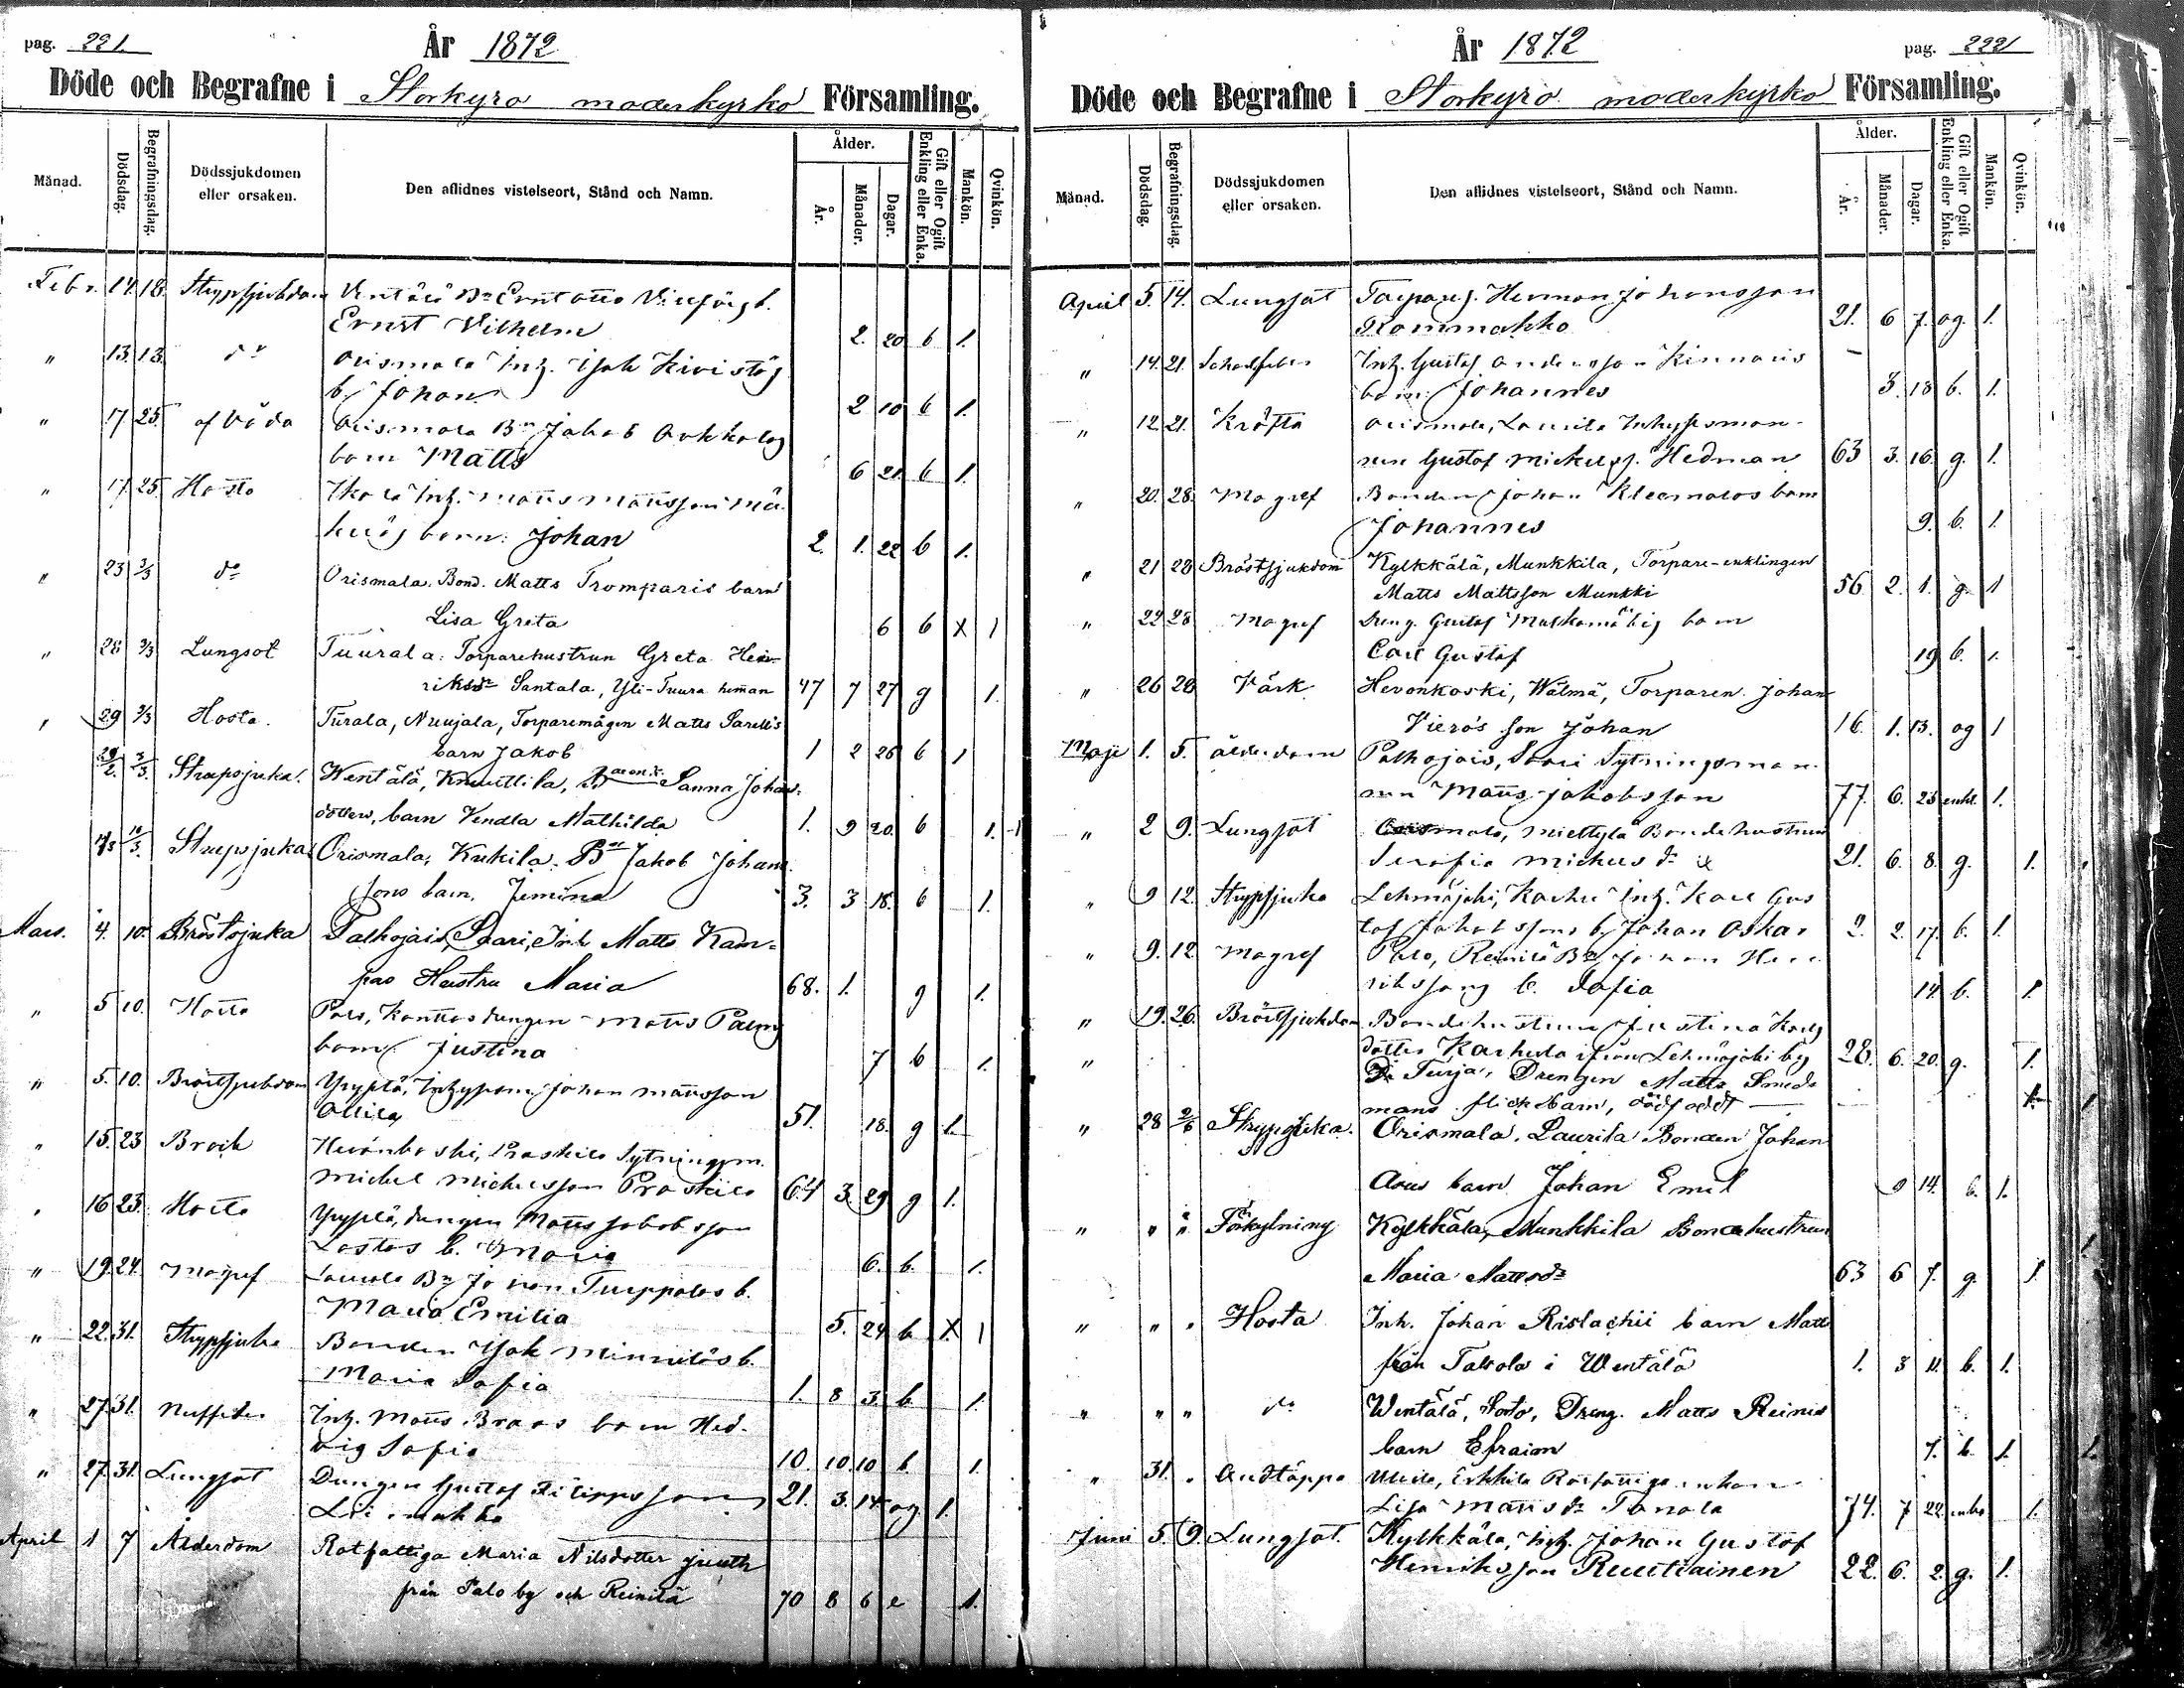 pag. 221.
År 1872
Döde och Begrafne i Storkyro moderkyrko Församling.
Månad.
Dödsdag.
Begrafningsdag.
Dödssjukdomen
eller orsaken.
Den aflidnes vistelseort, Stånd och Namn.
Ålder.
År.
Månader.
Dagar.
Gift eller Ogift
Enkling eller Enka.
Mankön.
Qvinkön.
Febr. 14. 18. Strypsjukdom Ventälä Bn Ernst Otto
Ernst Vilhelm 2. 20 b 1.
" 13. 18. do Orismala Inh. Isak Kivistös
b. Johan 2 10 b 1.
" 17 25. af våda Orismala Bn Jakob
barn Matts 6 21. b 1.
" 17. 25. Hosta Ikola Inh. Matts Mattsson
barn: Johan 2. 1. 22 b 1.
" 23 3/3 do Orismala. Bond. Matts Tromparis barn
Lisa Greta 6 b X 1
" 28 3/3 Lungsot Tuurala: Torparehustrun Greta Hein-
riksdr Santala, Yli-Tuura heman 47 7 27 g 1.
" 29 3/3 Hosta. Turala, Nuujala, Torparemågen Matts Sarell's
barn Jakob 1 2 26 b 1
29/2. 3/3. Strupsjuka. Wentälä, Knuuttila, Sanna Johans-
dotters, barn Vendla Mathilda 1. 9 20. b 1.
1/3 10/3. Strupsjuka Orismala, Kukila. Bn Jakob Johans
sons barn, Jemina 3. 3 18. b 1.
Mars. 4. 10. Bröstsjuka Palhojais, Saari, Inh Matts Kam-
pas Hustru Maria 68. 1. g 1.
" 5 10. Hosta Palo, Konttas drängen Matts
barn Justina 7 b 1.
" 5. 10. Bröstsjukdom Ypyplä, Inhysesm. Johan Mattsson
Ollila 51. 18. g 1.
" 15. 23 Bråck Hevonkoski, Praskila Sytningsm.
Michel Michelsson Praskila 64 3. 29 g 1.
" 16 23. Hosta Ypyplä, drängen Matts Jakobsson
b. Maria 6. b. 1.
" 19. 24. Magref Laurola Bn Johan Turppalas b.
Maria Emilia 5. 24 b X 1
" 22. 31. Strypsjuka Bonden Isak Minniläs b.
Maria Sofia 1. 8 3. b. 1.
" 27. 31. Inh. Matts Braas barn Hed-
vig Sofia 10. 10. 10 b. 1.
" 27. 31. Lungsot Drängen Gustaf Filippsson
21. 3. 14 og 1.
April 1 7 Ålderdom Rotfattiga Maria Nilsdotter Juuth
från Palo by och Reinilä 70 8 6 e 1.
År 1872
pag. 222
Döde och Begrafne i Storkyro moderkyrko Församling.
Månad.
Dödsdag.
Begrafningsdag.
Dödssjukdomen
eller orsaken.
Den aflidnes vistelseort, Stånd och Namn.
Ålder.
År.
Månader.
Dagar.
Gift eller Ogift
Enkling eller Enka.
Mankön.
Qvinkön.
April 5. 14. Lungsot Torpares. Herman Johansson
Kommakko 21. 6 7. og. 1.
" 14. 21. Inh. Gustaf Andersson Kinnaris
barn: Johannes 3. 18 b. 1.
" 12. 21. Kräfta Orismala, Laurila Inhysesman-
nen Gustaf Michelss. Hedman 63 3. 16. g. 1.
" 20. 28. Magref Bonden Johan Kleemolas barn
Johannes 9. b. 1
" 21 28 Bröstsjukdom Kylkkälä, Munkkila, Torpare-enklingen
Matts Mattsson Munkki 56 2. 1. g. 1
" 22 28 Magref Dreng. Gustaf barn
Carl Gustaf 19 b. 1.
" 26 28 Värk Hevonkoski, Wälmä, Torparen Johan
Vierös son Johan 16. 1. 13. og 1
Maji 1. 5. ålderdom Palhojais, Saari Sytningsman-
nen Matts Jakobsson 77. 6. 25 enkl. 1.
" 2 9. Lungsot Orismala, Miettylä Bondehustrun
Serafia Michelsdr 21. 6. 8. g. 1.
" 9 12. Strypsjuka Lehmäjoki, Karhu Inh. Karl Gus
taf Jakobssons b. Johan Oskar 2. 2. 17. b. 1.
" 9. 12. Magref Palo, Reinilä Bn Johan Hen
rikssons b. Sofia 14. b. 1.
" 19. 26. Bröstsjukdom Bondehustrun Justina Karls
dotter Karhula ifrån Lehmäjoki by 28. 6. 20. g. 1.
" Drengen Matts Smeds
mans flickbarn, dödfödt 1.
" 28 2/6 Strypsjuka. Orismala. Laurila Bonden Johan
barn Johan Emil 9 14. b. 1.
" " " Förkylning Kylkkälä, Munkkila Bondehustrun
Maria Mattsdr 63 6 7. g. 1.
" " " Hosta Inh. Johan Rislachii barn Matts
från Talvola i Wentälä 1. 3 11. b. 1.
" " " do Wentälä, Dreng. Matts Reinis
barn Efraim 7. b. 1.
" 31. " Andtäppa Ullila, Erkkila Rotfattiga enkan
Lisa Mattsdr Tanola 74. 7 22. enka 1.
Juni 5. 9. Lungsot. Kylkkälä, Inh. Johan Gustaf
Henriksson Ruuttiainen 22. 6. 2. g. 1.